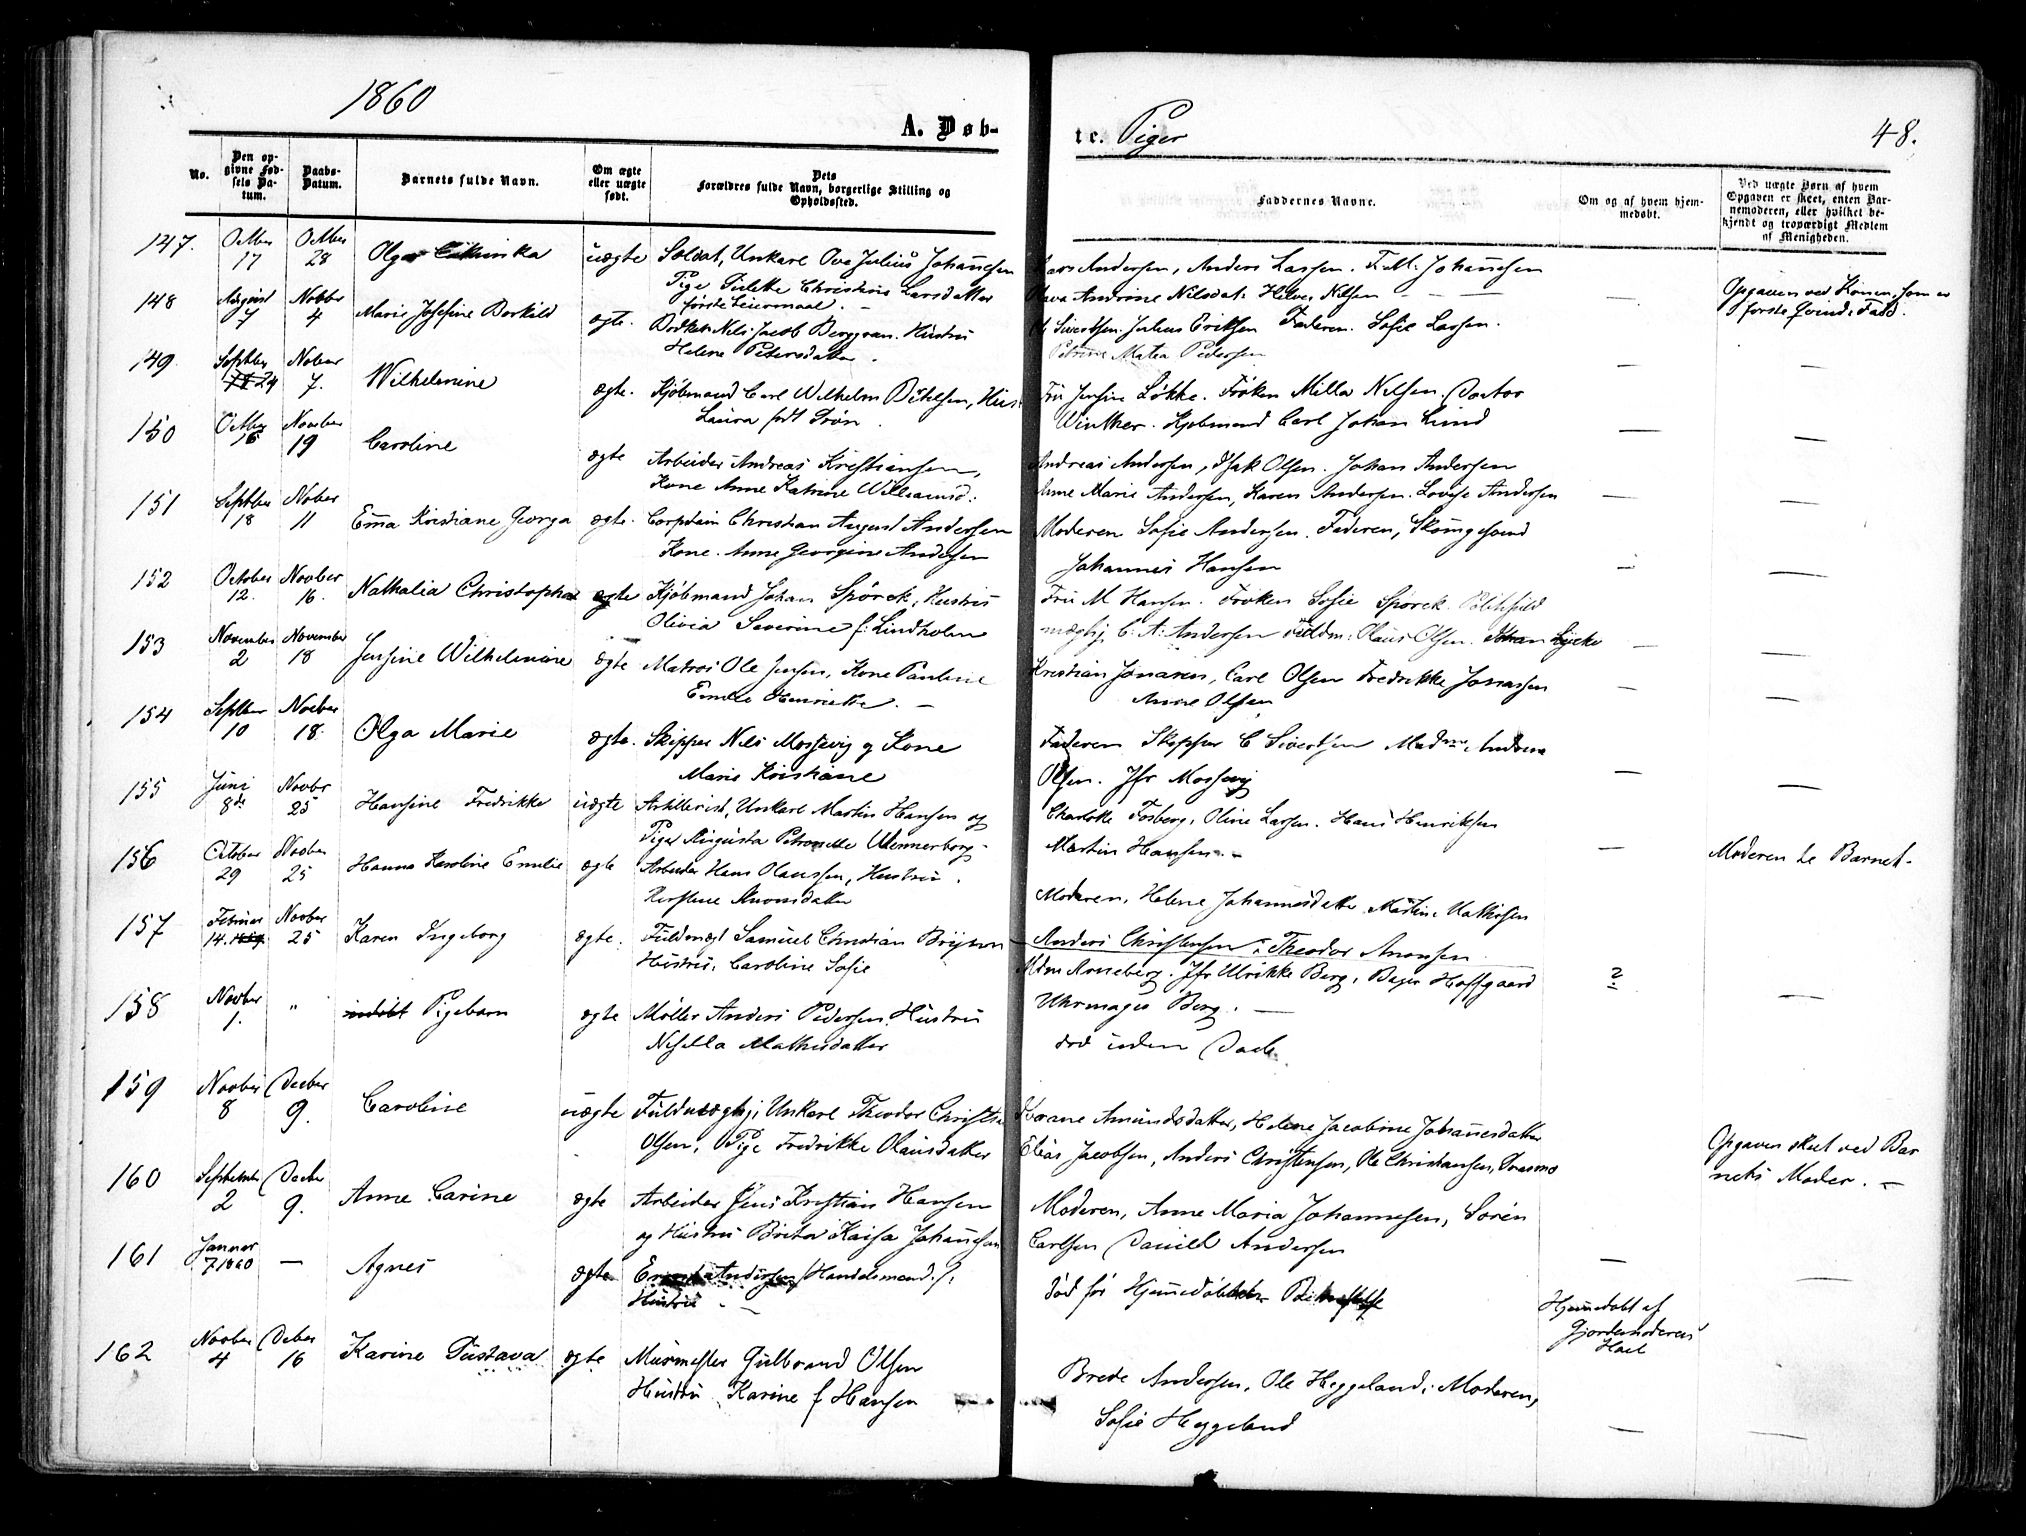 1860
A. Døb-
te. Piger
48.
No.
Den op-
givne Fød-
sels Da-
tum.
Daabs-
Datum.
Barnets fulde Navn.
Om ægte
eller uægte
født.
Dets
Forældres fulde Navn, borgerlige Stilling og
Opholdssted.
Faddernes Navne.
Om og af hvem hjem-
medøbt.
Ved uægte Børn af hvem
Opgaven er skeet, enten Bar-
nemoderen, eller hvilket be-
kjendt og troværdigt Medlem
af Menigheden.
147. Octber 17 Octber 28 Olga uægte Soldat, Unkarl Ove Julius Johannesen
Pige Christine Larsdatter
første Leiermaal. -
Lars Andersen, Anders Larsen. F. M. Johannesen
Andrine Nilsdat: Helve Nilsen
Opgaven ved Konen, som er
første Qvind: Fad.
148 August 7 Novbr 4 Marie Josefine Borkild ægte. Nils Jacob Berggren. Hustru
Helene Petersdatter.
Ole Sivertsen. Julius Eriksen Faderen. Sofie Larsen.
Petrine Matea Pedersen
149. Septber 24 Nober 7. Wilhelmine ægte. Kjøbmand Carl Wilhelm Hus:
Laura født
Fru Jensine Løkke. Frøken Milla Nilsen. Doctor
Winther. Kjøbmand Carl Johan Lund
150 Octber 16 Novber 19 Caroline ægte Arbeider Andreas Kristiansen,
Kone Anne Katrine Williamsd:
Andreas Andersen, Isak Olsen. Johan Andersen
Anne Marie Andersen, Karen Andersen. Lovise Andersen
151 Septber 18 Nober 11 Emma Kristiane Georga ægte. Christian August Andersen
Kone. Anne Georgine Andersen
Moderen Sofie Andersen. Faderen,
Johannes Hansen
152 October 12. Novber 16. Nathalia Christopha ægte Kjøbmand Johan Spörck, Hustru
Olivia Severine f: Lindholm
Fru M Hansen. Frøken Sofie Spörck.
C. A. Andersen Fuldm: Olaus Olsen. Johan Lycke
153 November 2 November 18 Jensine Wilhelmine ægte Matros Ole Jensen, Kone Pauline
Emilie Henriette. -
Kristian Jonasen, Carl Olsen Fredrikke Jonassen
Anne Olsen
154 Septber 10 Novber 18. Olga Marie ægte. Skipper Nils Mossevig og Kone
Marie Kristiane
Faderen Skipper C Sivertsen Madme. Andrea
Olsen. Jfr Mossevig
155 Juni 8de Novbr 25 Hansine Fredrikke uægte Artillerist, Unkarl Martin Hansen og
Pige Augusta Petronelle Wennerberg
Charlotte Fosberg, Oline Larsen. Hans Henriksen
Martin Hansen. -
Moderen te Barnet.
156 October 29 Novber 25 Hanna Karoline Emilie ægte Arbeider Hans Olaussen, Hustru
Moderen, Helene Johannesdatter
Anders Christensen, Theodor Amonsen
157 Februar 14. 1859. Novber 25 Karen Ingeborg ægte. Fuldmægt Samuel Christian
Hustru, Caroline Sofie
Mdm Arneberg. Jfr Ulrikke Berg, Bager Hoffgaard
Uhrmager Berg. -
?
158 Novber 1. " udøbt Pigebarn ægte Møller Anders Pedersen. Hustru
Mathisdatter
død uden Daab.
159 Novber 8 Decber 9. Caroline uægte Fuldmægtig, Unkarl Theodor Christian
Olsen, Pige Fredrikke Olausdatter
Amundsdatter, Helene Jacobine Johannesdatter
Elias Jacobsen, Anders Christensen, Ole Christiansen,
Opgaven skeet ved Bar
nets Moder. -
160 September 2 Decber 9. Anne Carine ægte Arbeider Jens Kristian Hansen
og Hustru Brita Kaisa Johannesen
Moderen, Anne Maria Johannesen, Sørén
Carlsen Daniel Andersen
161 Januar 7 1860 - Agnes ægte Andersen (Handelsmand),
Hustru -
død før Hjemmedøbtes Bekræftelse
Hjemmedøbt af
Gjordemoderen
Hoel
162 Novber 4 Decber 16 Karine Gustava ægte Murmester Gulbrand Olsen
Hustru Karine f Hansen
Brede Andersen. Ole Heggeland, Moderen,
Sofie Heggeland